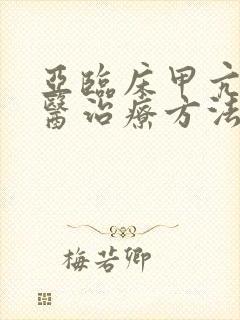 亞臨床甲亢
醫治療方法
梅若卿